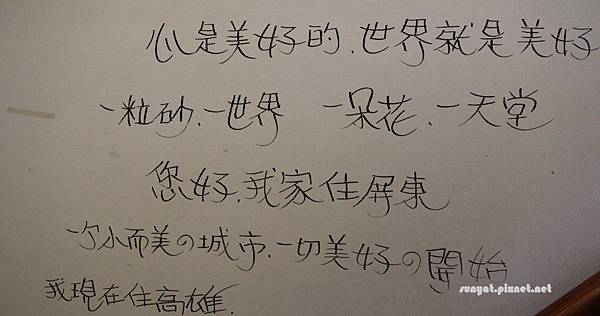 心是美好的.世界就是美好
一粒砂.一世界 一朵花.一天堂
您好.我家住屏東
一个小而美の城市.一切美好の開始
我現在住高雄.
sunyat.pixnet.net